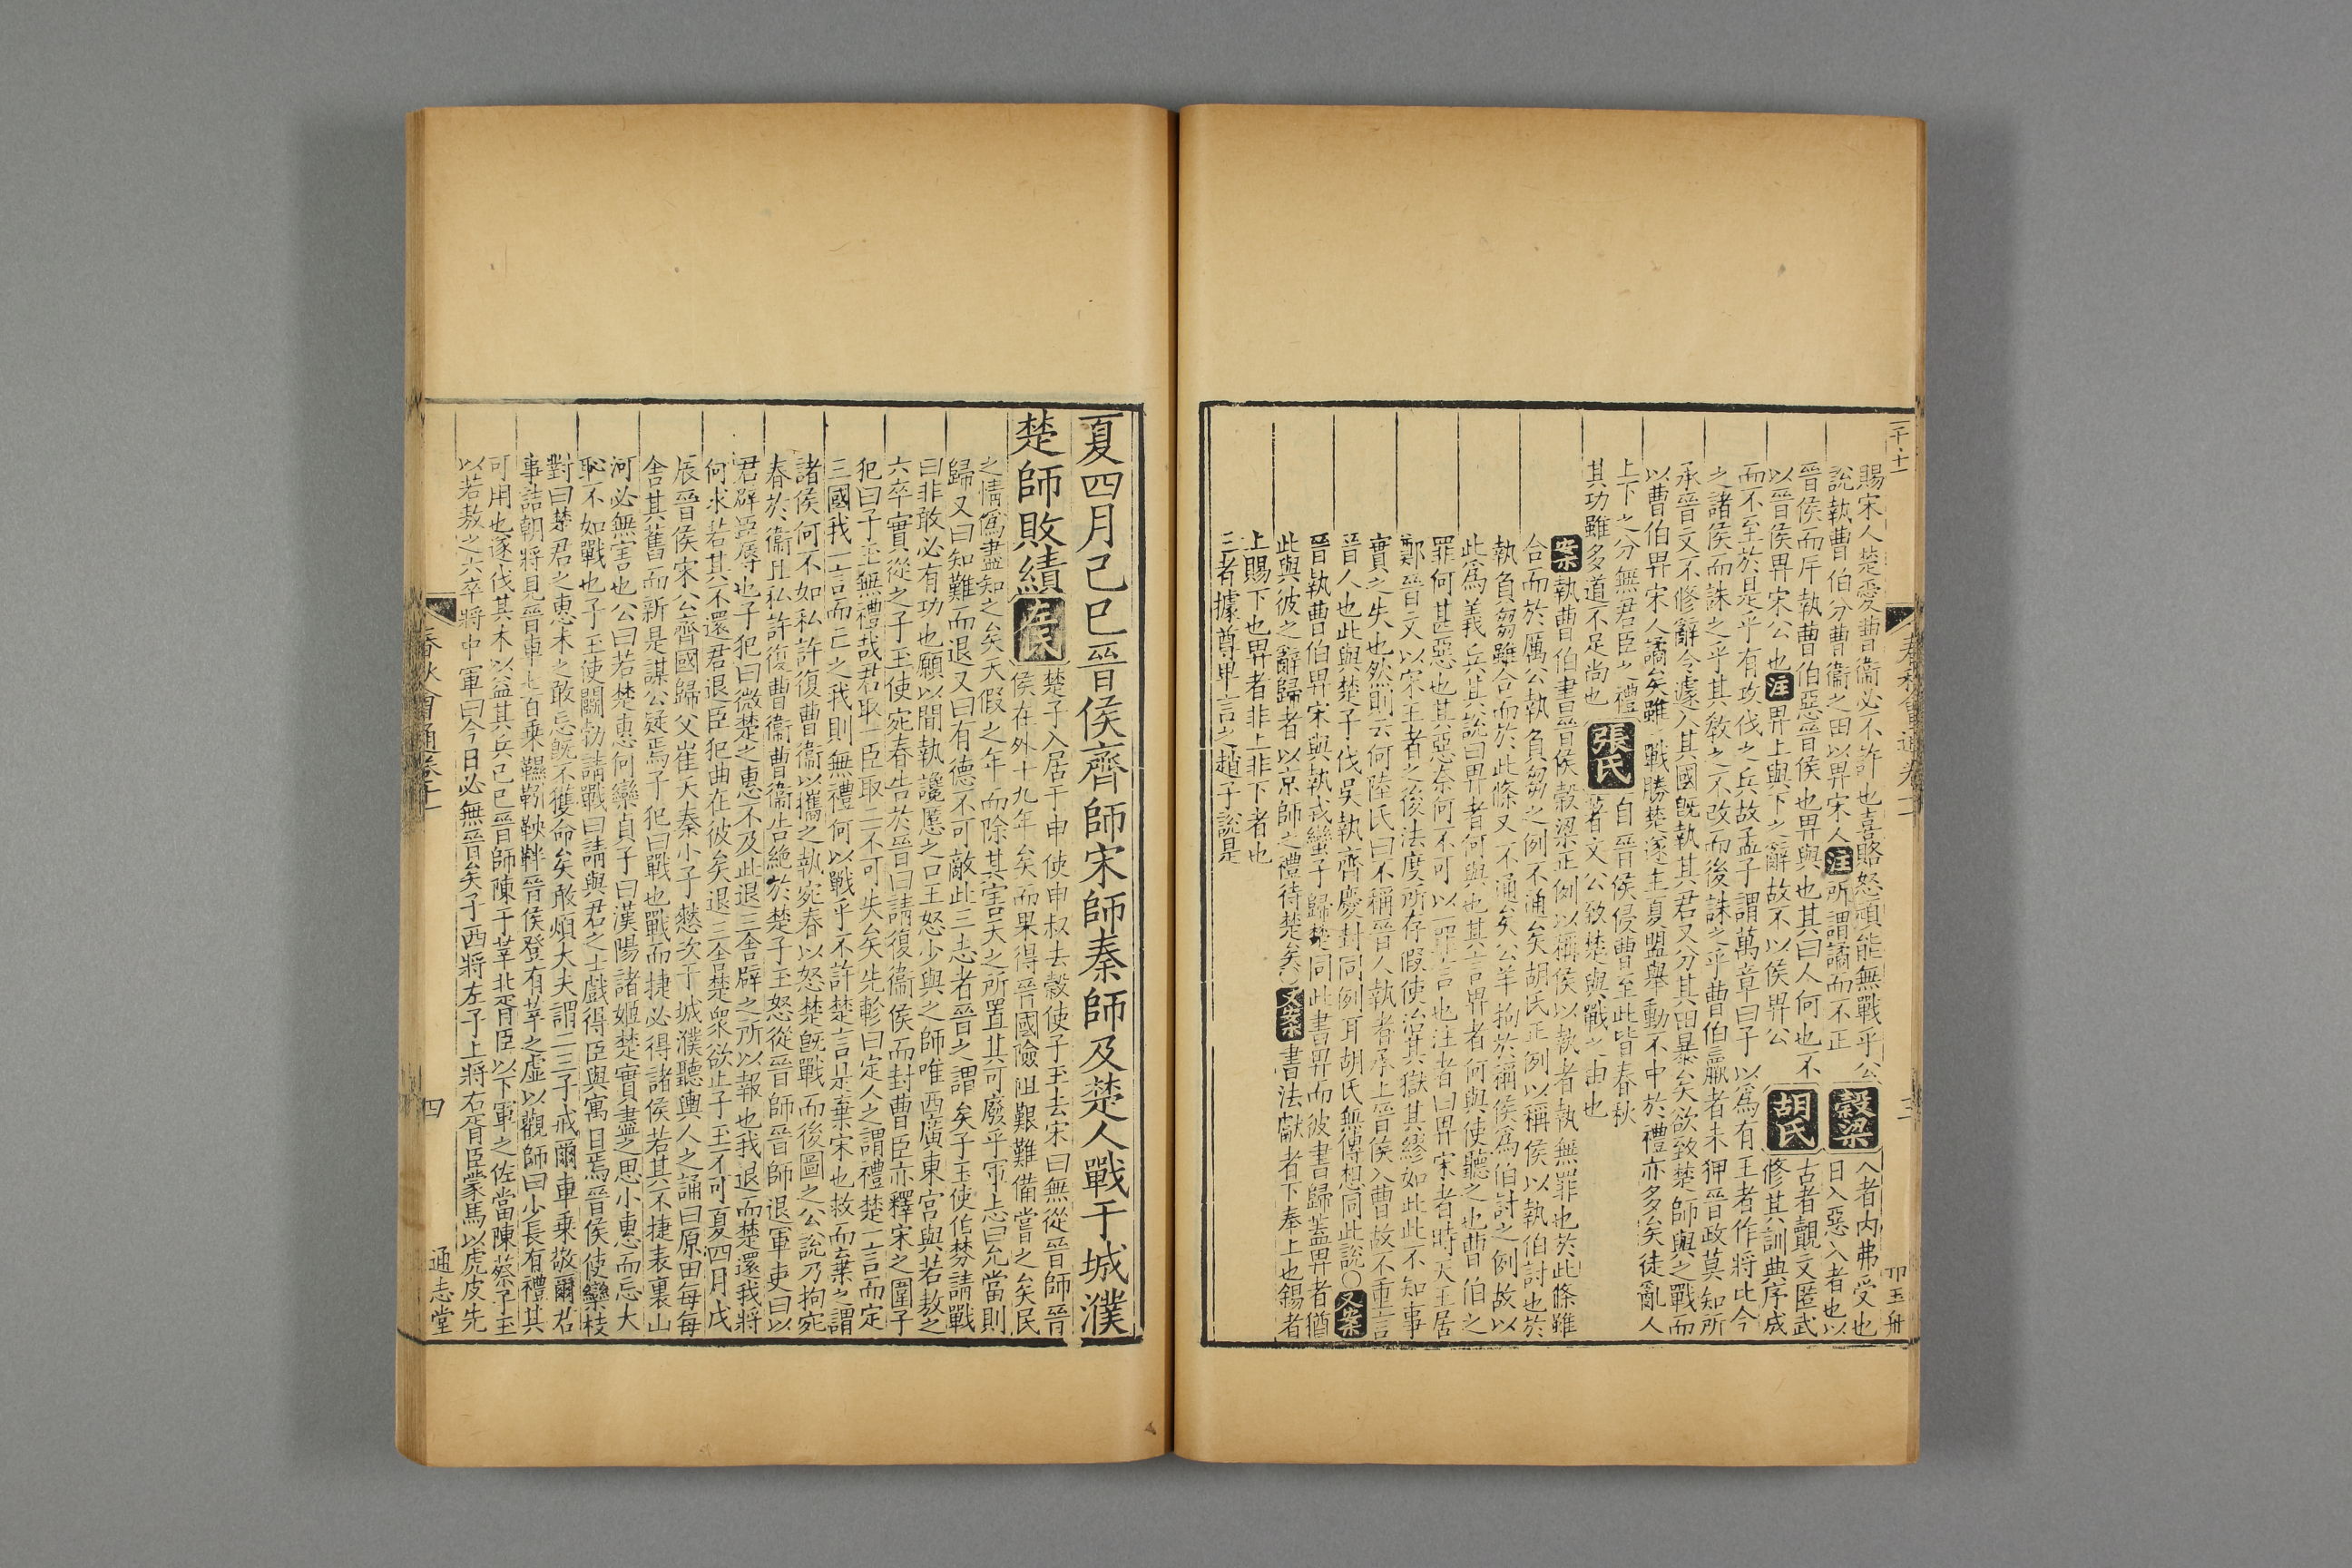 千十一
春秋會通卷十一
三
卬玉舟
賜宋人楚愛曹衞必不許也喜賂怒頑能無戰乎公
說執曹伯分曹衞之田以畀宋人注所謂譎而不正
穀梁
入者内弗受也
日入惡入者也以
晉侯而斥執曹伯惡晉侯也畀與也其曰人何也不
以晉侯畀宋公也注畀上與下之辭故不以侯畀公
胡氏
古者覿文匿武
修其訓典序成
而不至於是乎有攻伐之兵故孟子謂萬章曰子以爲有王者作將比今
之諸侯而誅之乎其教之不改而後誅之乎曹伯羸者未狎晉政莫知所
承晉文不修辭令遽入其國旣執其君又分其田暴矣欲致楚師與之戰而
以曹伯畀宋人譎矣雖一戰勝楚遂主夏盟舉動不中於禮亦多矣徒亂人
上下之分無君臣之禮
其功雖多道不足尚也
張氏
自晉侯侵曹至此皆春秋
著文公致楚與戰之由也
案執曹伯書晉侯穀梁正例以稱侯以執者執無罪也於此條雖
合而於厲公執負芻之例不通矣胡氏正例以稱侯以執伯討也於
執負芻雖合而於此條又不通矣公羊拘於稱侯爲伯討之例故以
此爲義兵其說曰畀者何與也其言畀者何與使聽之也曹伯之
罪何甚惡也其惡奈何不可以一罪言也注者曰畀宋者時天王居
鄭晉文以宋王者之後法度所存假使治其獄其繆如此此不知事
實之失也然則云何陸氏曰不稱晉人執者承上晉侯入曹故不重言
晉人也此與楚子伐吳執齊慶封同例耳胡氏無傳想同此說○又案
晉執曹伯畀宋與執戎蠻子歸楚同此書畀而彼書歸蓋畀者猶
此與彼之辭歸者以京師之禮待楚矣又案書法獻者下奉上也錫者
上賜下也畀者非上非下者也
三者據尊卑言之趙子說是
夏四月己巳晉侯齊師宋師秦師及楚人戰于城濮
楚師敗績左氏
楚子入居于申使申叔去穀使子玉去宋曰無從晉師晉
侯在外十九年矣而果得晉國險阻艱難備嘗之矣民
之情僞盡知之矣天假之年而除其害天之所置其可廢乎軍志曰允當則
歸又曰知難而退又曰有德不可敵此三志者晉之謂矣子玉使伯棼請戰
曰非敢必有功也願以間執讒慝之口王怒少與之師唯西廣東宮與若敖之
六卒實從之子玉使宛春告於晉曰請復衞侯而封曹臣亦釋宋之圍子
犯曰子玉無禮哉君取一臣取二不可失矣先軫曰定人之謂禮楚一言而定
三國我一言而亡之我則無禮何以戰乎不許楚言是棄宋也救而棄之謂
諸侯何不如私許復曹衞以攜之執宛春以怒楚旣戰而後圖之公說乃拘宛
春於衞且私許復曹衞曹衞告絶於楚子玉怒從晉師晉師退軍吏曰以
君辟臣辱也子犯曰微楚之惠不及此退三舍辟之所以報也我退而楚還我將
何求若其不還君退臣犯曲在彼矣退三舍楚衆欲止子玉不可夏四月戊
辰晉侯宋公齊國歸父崔夭秦小子憖次于城濮聽輿人之誦曰原田每每
舍其舊而新是謀公疑焉子犯曰戰也戰而捷必得諸侯若其不捷表裏山
河必無害也公曰若楚惠何欒貞子曰漢陽諸姬楚實盡之思小惠而忘大
恥不如戰也子玉使鬭勃請戰曰請與君之士戲得臣與寓目焉晉侯使欒枝
對曰楚君之惠未之敢忘旣不獲命矣敢煩大夫謂二三子戒爾車乗敬爾君
事詰朝將見晉車七百乗韅靷鞅靽晉侯登有莘之虛以觀師曰少長有禮其
可用也遂伐其木以益其兵己巳晉師陳于莘北胥臣以下軍之佐當陳蔡子玉
以若敖之六卒將中軍曰今日必無晉矣子西將左子上將右胥臣蒙馬以虎皮先
春秋會通卷十一
四
通志堂